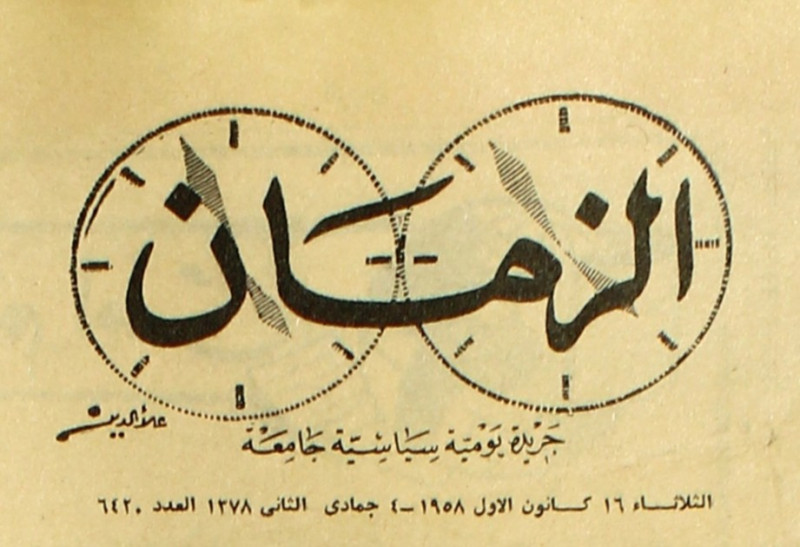 الزمان
علاءالدين
جَريدة يَوميّة سيَاسْيّة جَامِعَة
الثلاثاء ١٦ كانون الاول ١٩٥٨ – ٤ جمادى الثانى ١٣٧٨ العدد ٦٤٢٠